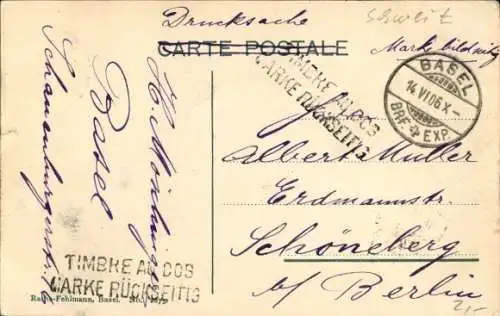 Drucksache
Schweiz
CARTE POSTALE
Marke bildseitig
TIMBRE AU DOS
MARKE RÜCKSEITIG
BASEL
14.VI.06.X-
BRF. EXP.
Herrn
Albert Müller
Erdmannstr.
Schöneberg
b/ Berlin
2,-
Basel
Schauenburgerstr.
TIMBRE AU DOS
MARKE RÜCKSEITIG
-Fehlmann, Basel. No.